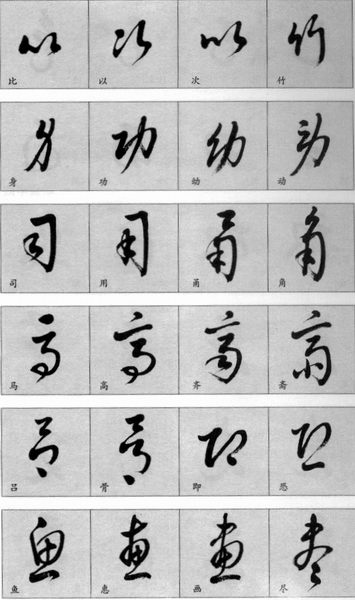 比 以 次 竹
身 功 幼 动
司 用 甬 角
马 高 齐 斋
吕 骨 即 恐
鱼 惠 画 尽